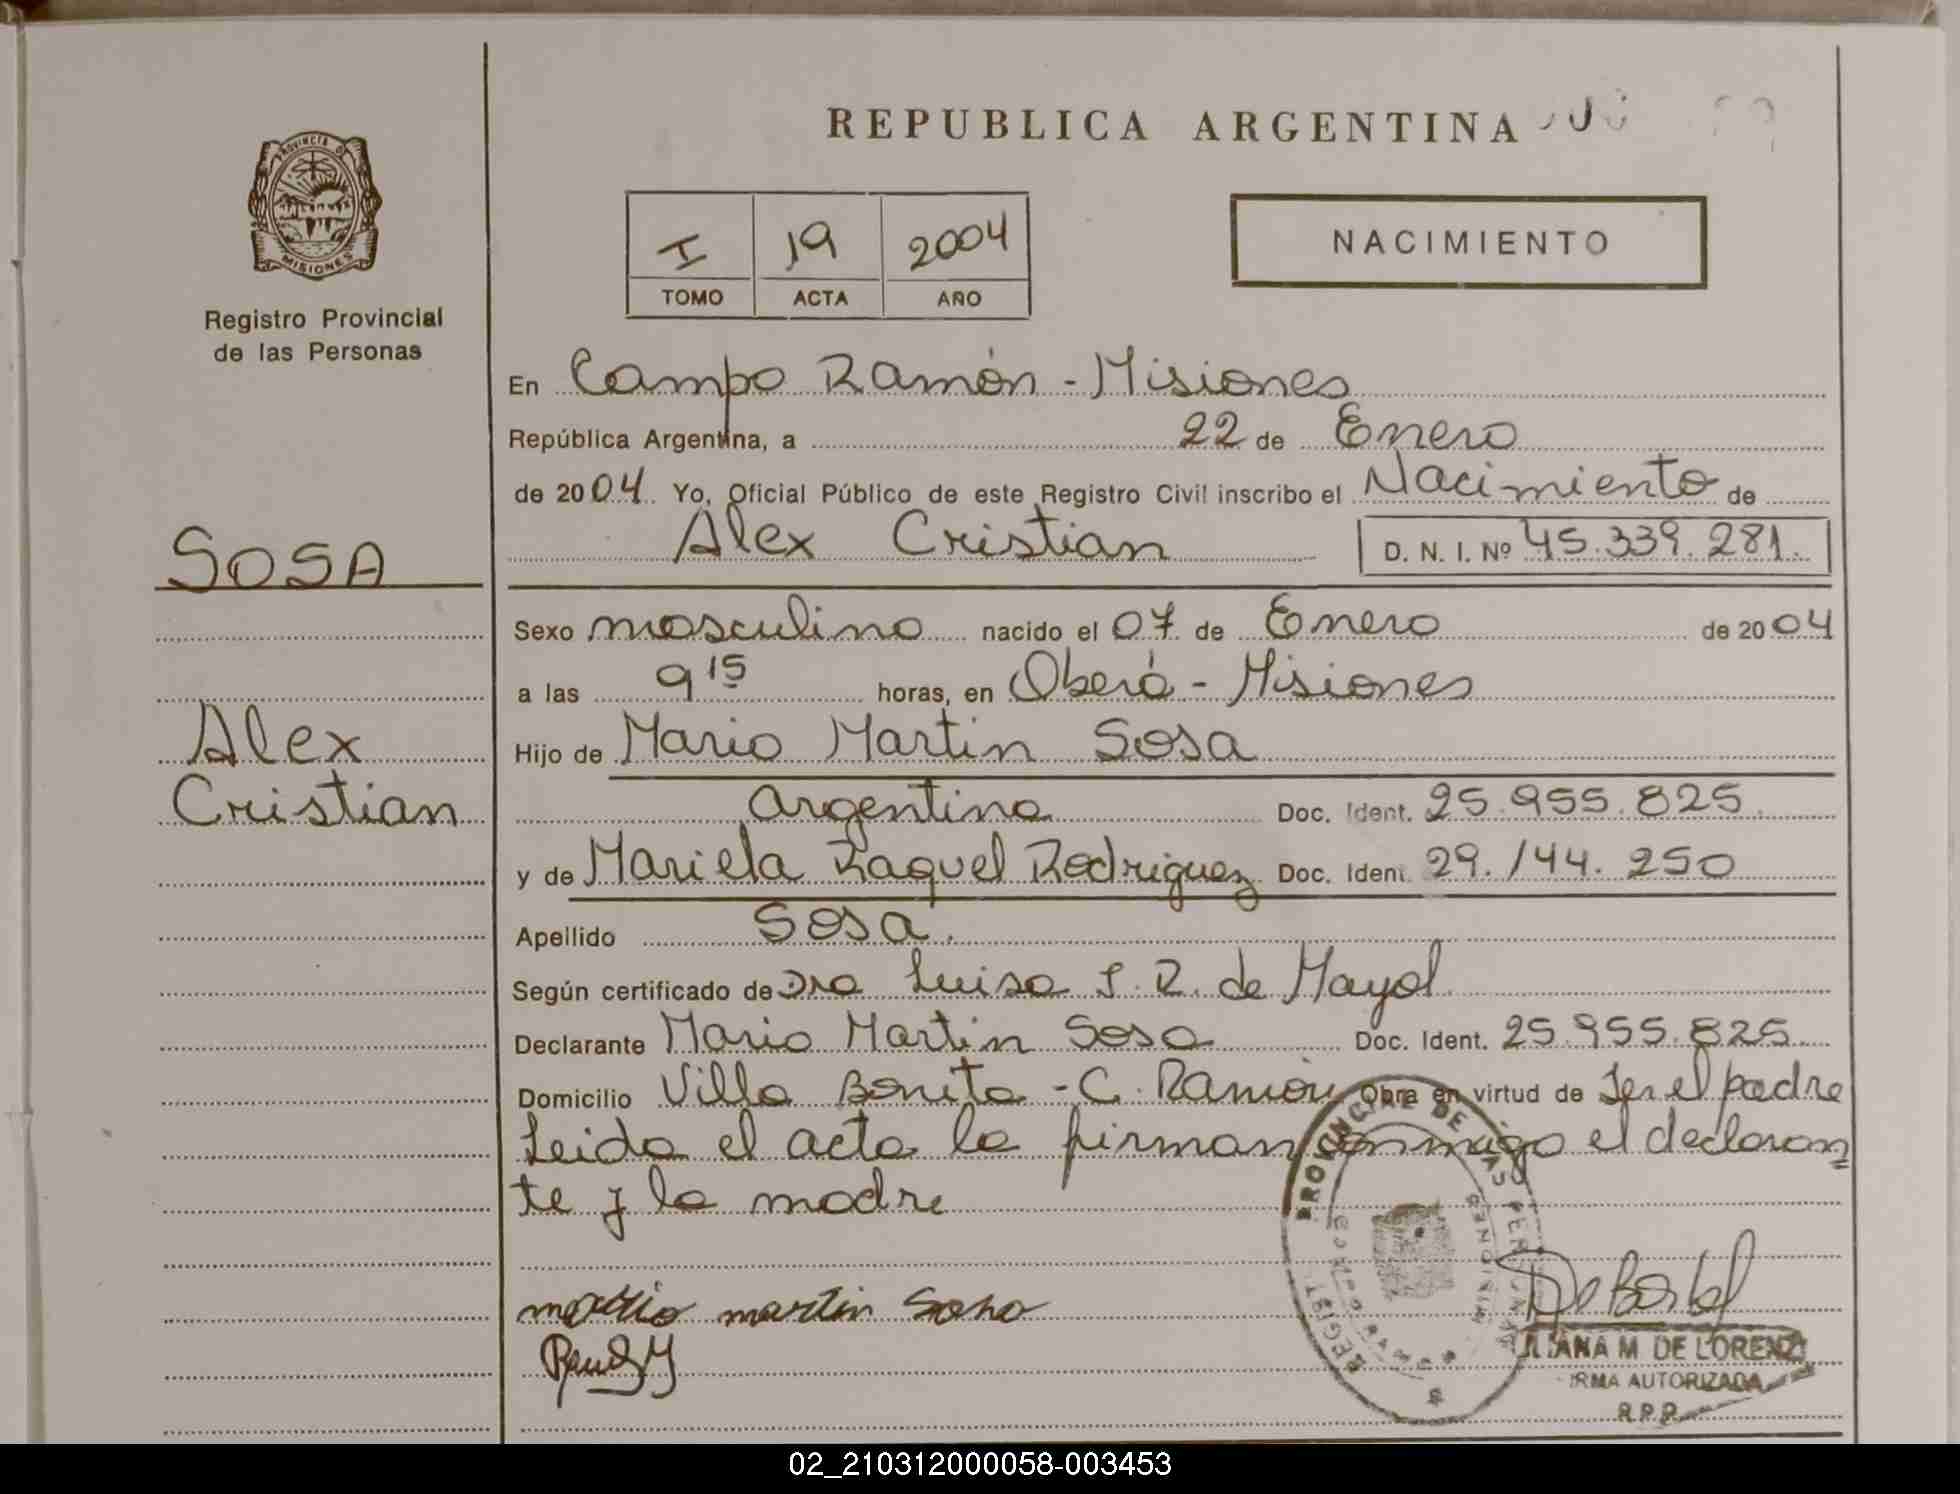 REPUBLICA ARGENTINA
PROVINCIA DE
MISIONES
Registro Provincial
de las Personas
I 19 2004
TOMO ACTA AÑO
NACIMIENTO
En Campo Ramón - Misiones
República Argentina, a 22 de Enero
de 2004 Yo, Oficial Público de este Registro Civil inscribo el Nacimiento de
Alex Cristian D. N. I. Nº 45.339.281.
SOSA
Sexo masculino nacido el 07 de Enero de 2004
a las 9 15 horas, en Oberá - Misiones
Alex
Cristian
Hijo de Mario Martin Sosa
argentino Doc. Ident. 25.955.825.
y de Mariela Raquel Rodriguez Doc. Ident. 29.144.250
Apellido Sosa.
Según certificado de Dra Luisa S. R. de Mayol
Declarante Mario Martin Sosa Doc. Ident. 25.955.825.
Domicilio Villa Bonita - C. Ramón Obra en virtud de Ser el padre
Leida el acta la firman conmigo el declaran=
te y la madre
martin
PROVINCIAL DE LAS PERSONAS
MISIONES
REGIST
JULIANA M. DE LORENZI
FIRMA AUTORIZADA
R.P.P.
02_210312000058-003453